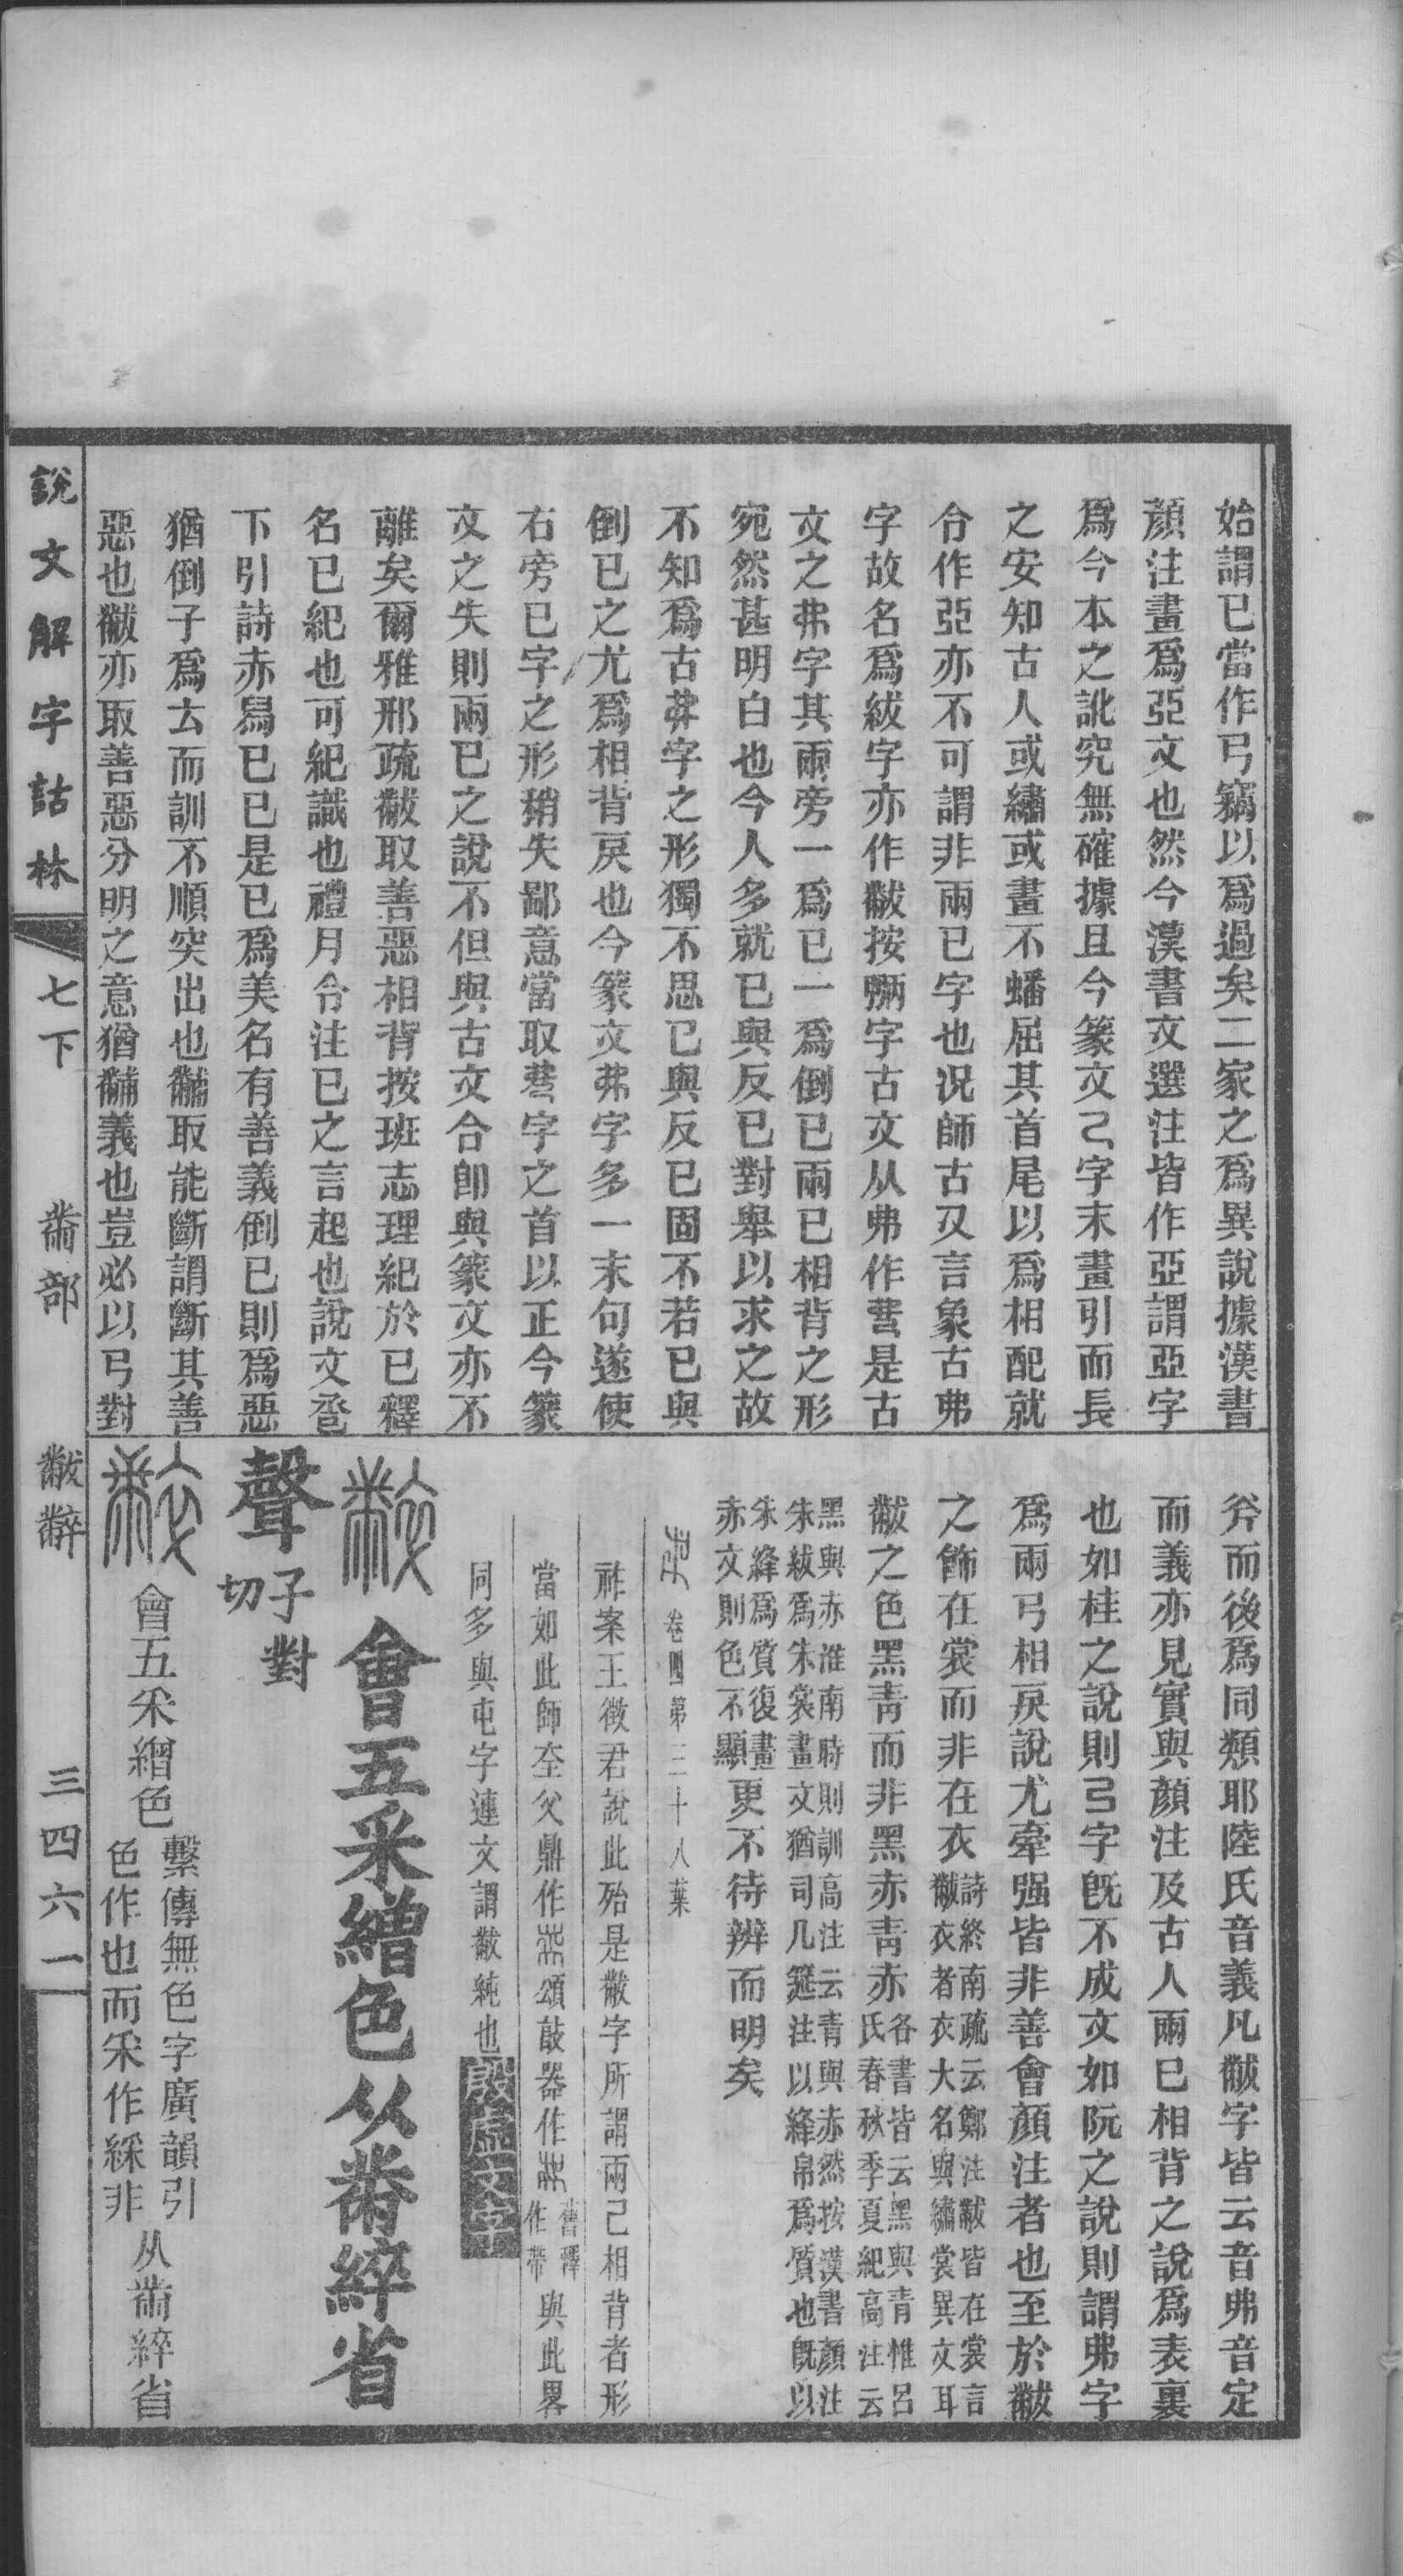 始謂已當作弓竊以爲過矣二家之爲異說據漢書
顏注畫爲亞文也然今漢書文選注皆作亞謂亞字
爲今本之訛究無確據且今篆文己字末畫引而長
之安知古人或繡或畫不蟠屈其首尾以爲相配就
令作亞亦不可謂非兩已字也況師古又言象古弗
字故名爲紱字亦作黻按弼字古文从弗作是古
文之弗字其兩旁一爲已一爲倒已兩已相背之形
宛然甚明白也今人多就已與反已對舉以求之故
不知爲古字之形獨不思已與反已固不若已與
倒已之尤爲相背戾也今篆文弗字多一末句遂使
右旁已字之形稍失鄙意當取字之首以正今篆
文之失則兩已之說不但與古文合卽與篆文亦不
離矣爾雅邢疏黻取善惡相背按班志理紀於已釋
名已紀也可紀識也禮月令注已之言起也說文卺
下引詩赤舄已已是已爲美名有善義倒已則爲惡
猶倒子爲𠫓而訓不順突出也黼取能斷謂斷其善
惡也黻亦取善惡分明之意猶黼義也豈必以弓對
斧而後爲同類耶陸氏音義凡黻字皆云音弗音定
而義亦見實與顏注及古人兩已相背之說爲表裏
也如桂之說則弓字旣不成文如阮之說則謂弗字
爲兩弓相戾說尤牽强皆非善會顏注者也至於黻
之飾在裳而非在衣詩終南疏云鄭注黻皆在裳言
黻衣者衣大名與繡裳異文耳
黻之色黑靑而非黑赤靑赤各書皆云黑與青惟呂
氏春秋季夏紀高注云
黑與赤淮南時則訓高注云青與赤然按漢書顏注
朱紱爲朱裳畫文猶司几筵注以絳帛爲質也旣以
朱絳爲質復畫
赤文則色不顯更不待辨而明矣
卷四第三十八葉
祚案王徵君說此殆是黻字所謂兩己相背者形
當如此師𡘇父鼎作頌𣪘器作舊釋
作帶與此畧
同多與屯字連文謂黻純也殷虛文字
會五采繒色从黹綷省
聲子對
切
會五采繒色繫傳無色字廣韻引
色作也而采作綵非从黹綷省
說文解字詁林 七下 黹部 黻䊝 三四六一